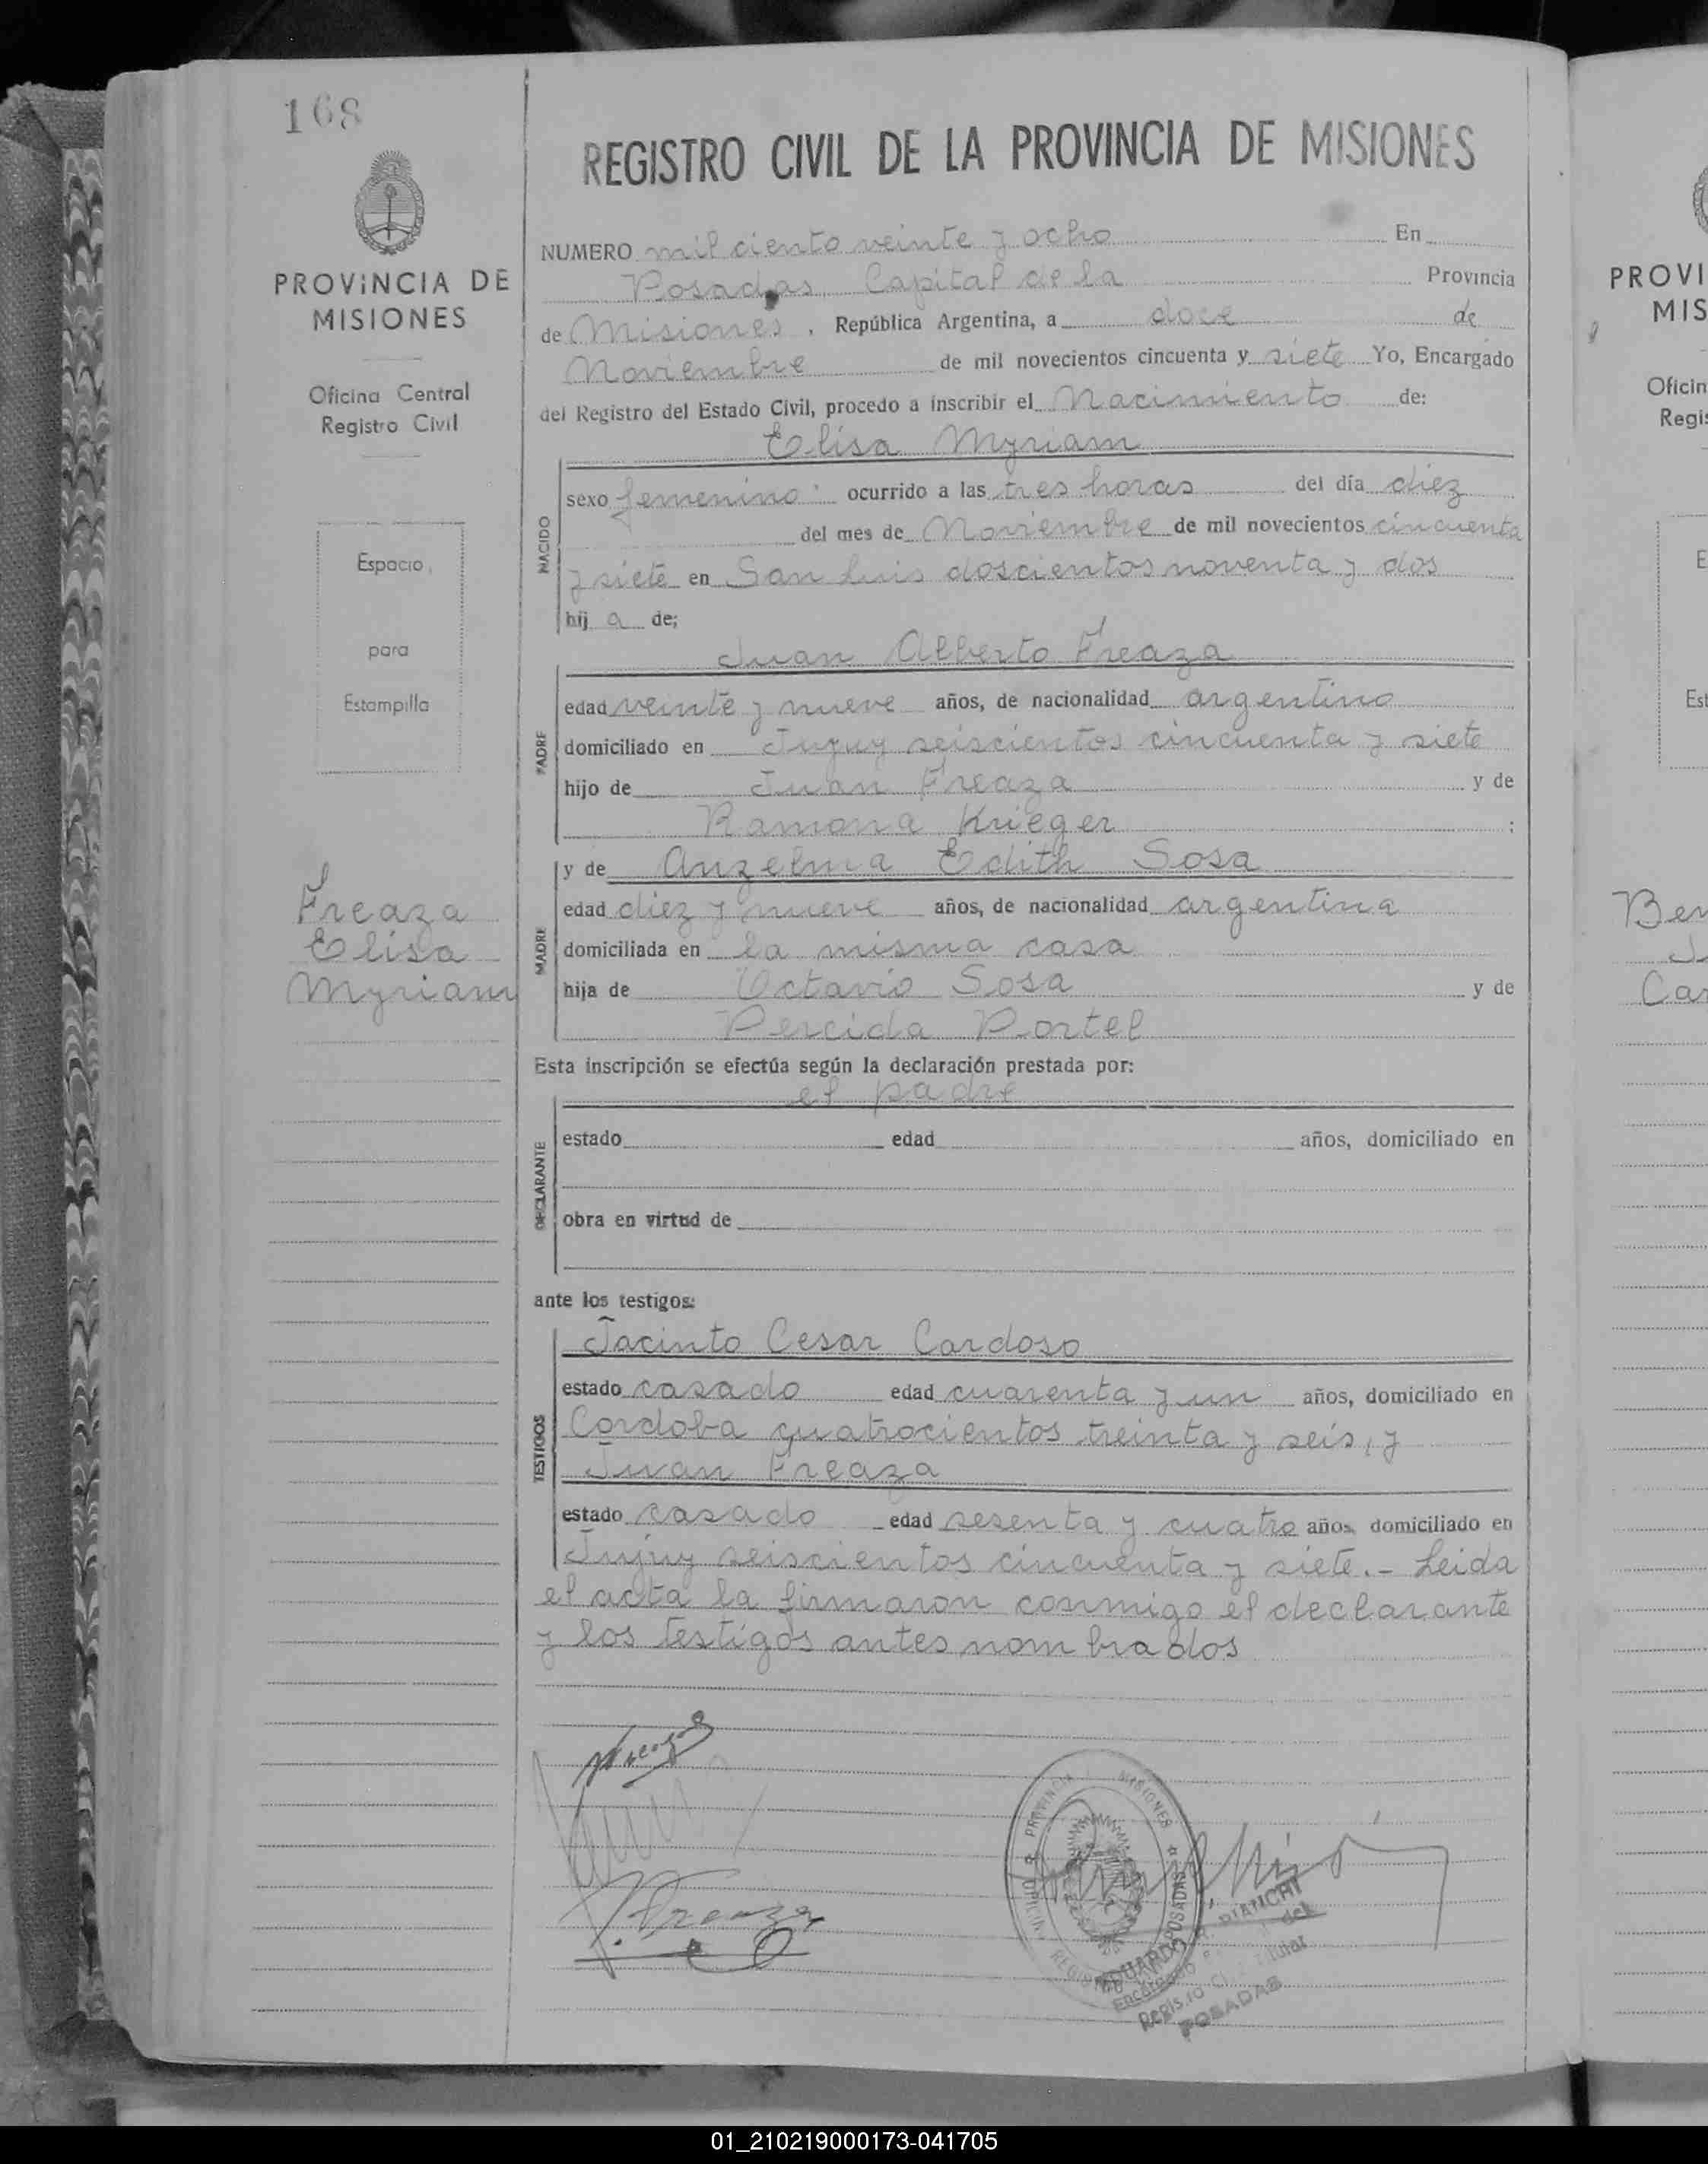 168
REGISTRO CIVIL DE LA PROVINCIA DE MISIONES
PROVINCIA DE
MISIONES
Oficina Central
Registro Civil
Espacio
para
Estampilla
Freaza
Elisa
Myriam
NUMERO mil ciento veinte y ocho En
Posadas Capital de la Provincia
de Misiones, República Argentina, a doce de
Noviembre de mil novecientos cincuenta y siete Yo, Encargado
del Registro del Estado Civil, procedo a inscribir el Nacimiento de:
Elisa Myriam
NACIDO
sexo femenino ocurrido a las tres horas del día diez
del mes de Noviembre de mil novecientos cincuenta
y siete en San Luis doscientos noventa y dos
hij a de;
Juan Alberto Freaza
PADRE
edad veinte y nueve años, de nacionalidad argentino
domiciliado en Jujuy seiscientos cincuenta y siete
hijo de Juan Freaza y de
Ramona Krieger ;
y de Anzelma Edith Sosa
MADRE
edad diez y nueve años, de nacionalidad argentina
domiciliada en la misma casa
hija de Octavio Sosa y de
Percida Portel
Esta inscripción se efectúa según la declaración prestada por:
el padre
DECLARANTE
estado edad años, domiciliado en
obra en virtud de
ante los testigos:
TESTIGOS
Jacinto Cesar Cardoso
estado casado edad cuarenta y un años, domiciliado en
Cordoba quatrocientos treinta y seis, y
Juan Freaza
estado casado edad sesenta y cuatro años, domiciliado en
Jujuy seiscientos cincuenta y siete.- Leida
el acta la firmaron conmigo el declarante
y los testigos antes nombrados
J. Freaza
PROVINCIA MISIONES
POSADAS
EDUARDO BIANCHI
Encargado del
Registro Civil Titular
POSADAS
PROVI
MIS
Oficin
Regis
E
Est
Ben
J
Car
01_210219000173-041705